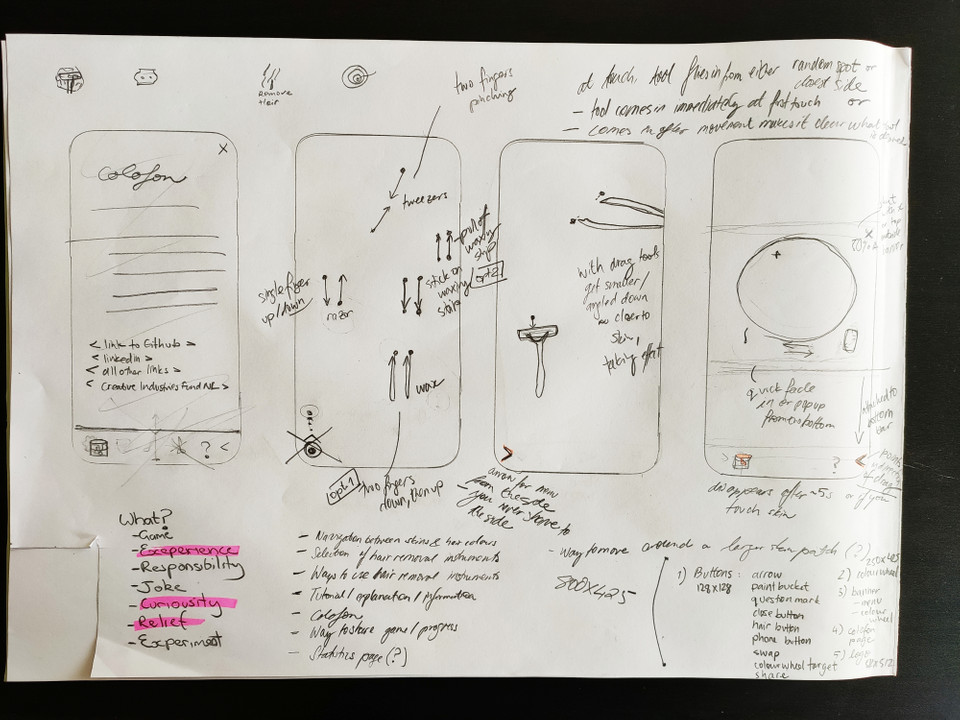 Remove
Hair
two fingers
pinching
at touch. tool flies in from either random spot or
closest side
- tool comes in immediately at first touch or
- comes in after movement makes it clear what tool
is desired
x
Colofon
< link to Github >
< linkedin >
< all other links >
< Creative Industries Fund NL >
? <
tweezers
single finger
up/down
razor
pull off
waxing
strip
opt2
stick on
waxing
wax
opt 1
two fingers
down, then up
with drag tools
get smaller/
angled down
so closer to
skin,
taking effect
>
arrow for menu
from the side
- you never shave to
the side
x
+
quick fade
in or popup
from bottom
attached to
bottom
bar
> ? <
disappears after ~5s or if you
touch skin
What?
- Game
- Exeperience
- Responsibility
- Joke
- Curiousity
- Relief
- Experiment
- Navigation between skins & hair colours
- Selection of hair removal instruments
- Ways to use hair removal instruments
- Tutorial / explanation / information
- Colofon
- Way to share game / progress
- Statistics page (?)
- Way to move around a larger skin patch (?)
800x425
1) Buttons: arrow
128x128 paint bucket
question mark
close button
hair button
phone button
swap
colour wheel target
share
2) colour wheel
3) banner
- menu
- colour
wheel
4) colofon
page
5) logo
512x512